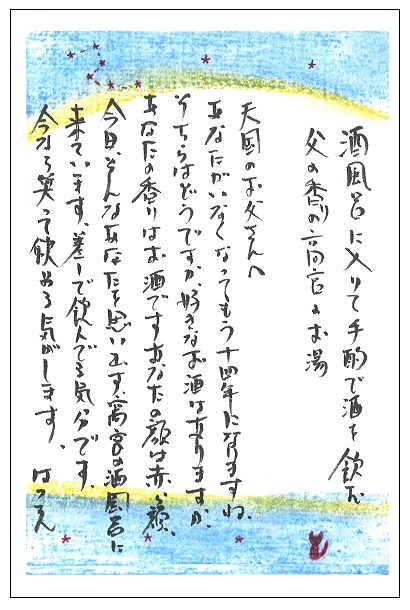 酒風呂に入りて手酌で酒を飲む
父の香りの高宮のお湯
天国のお父さんへ
あなたがいなくなってもう十四年になりますね。
そちらはどうですか、好きなお酒はありますか。
あなたの香りはお酒ですあなたの顔は赤い顔、
今日、そんなあなたを思い出す、高宮の酒風呂に
来ています、差しで飲んでる気分です、
今なら笑って飲める気がします、